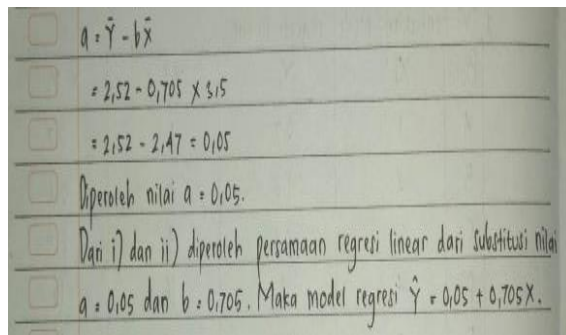 a = Ȳ - bX̄
= 2,52 - 0,705 × 3,5
= 2,52 - 2,47 = 0,05
Diperoleh nilai a = 0,05.
Dari i) dan ii) diperoleh persamaan regresi linear dari substitusi nilai
a = 0,05 dan b = 0,705. Maka model regresi Ŷ = 0,05 + 0,705X.